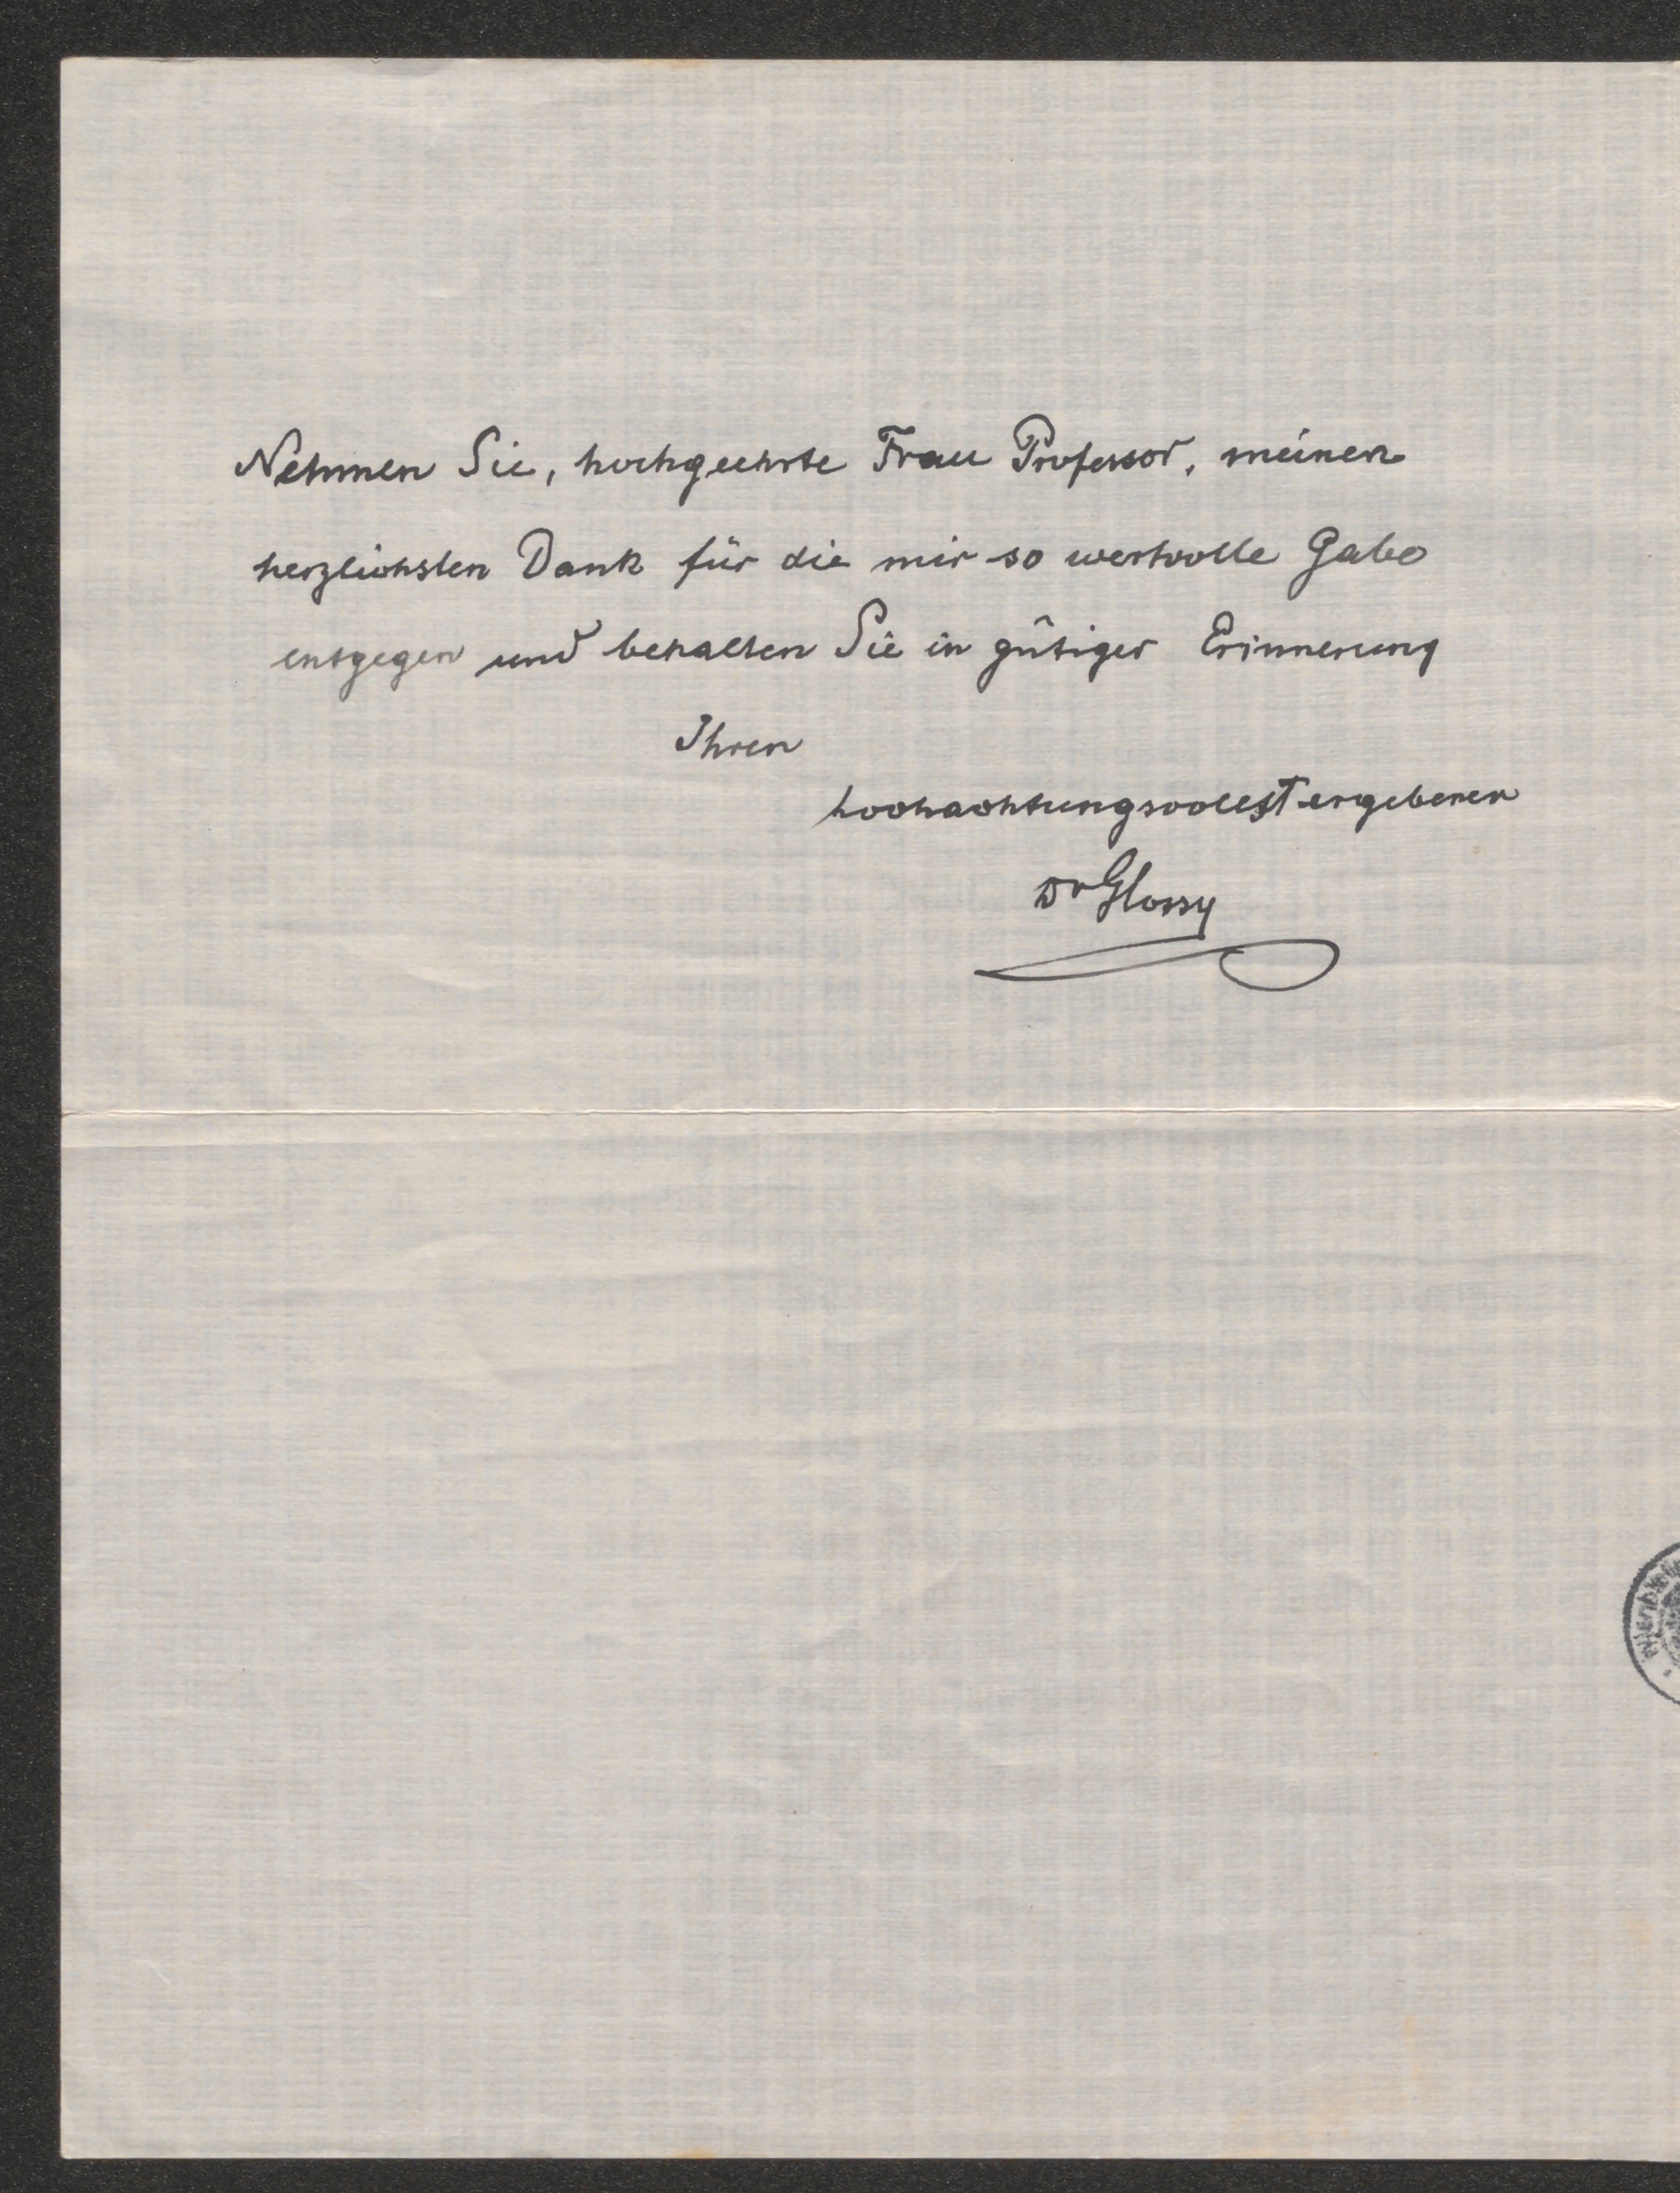 Nehmen Sie, hochgeehrte Frau Professor, meinen
herzlichsten Dank für die mir so wertvolle Gabe
entgegen und behalten Sie in gütiger Erinnerung
Ihren
hochachtungsvollst ergebenen
Dr Glossy